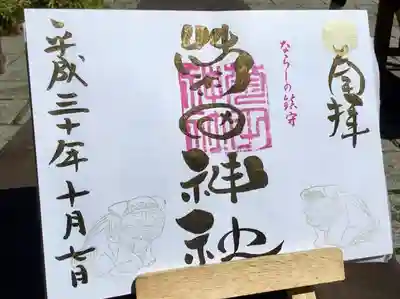 奉拝
ならしの鎮守
菊田神社
平成三十年十月七日